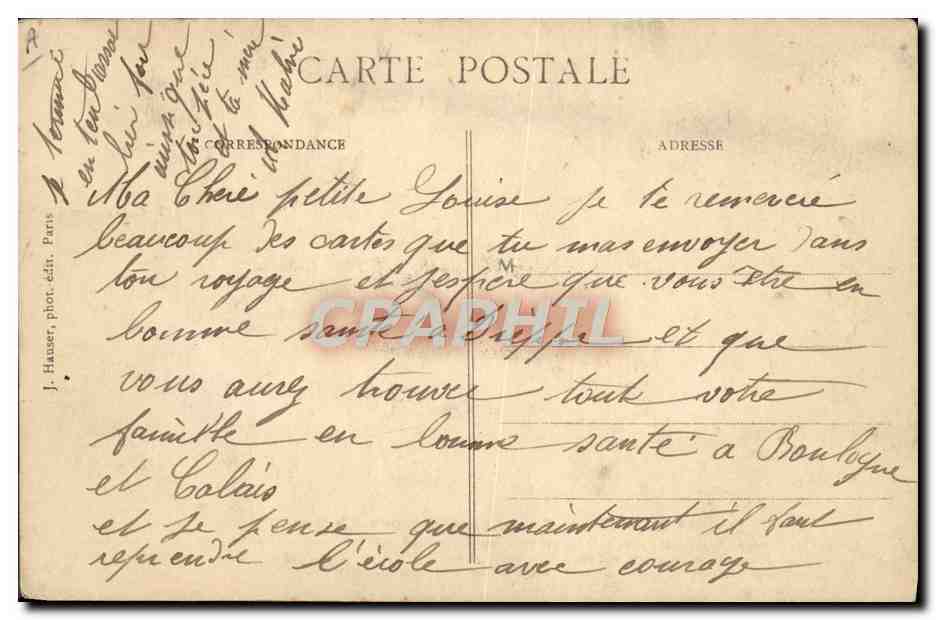 CARTE POSTALE
CORRESPONDANCE
ADRESSE
Ma Cheré petite Louise je te remercie
beaucoup des cartes que tu mas envoyer dans
ton voyage et j'espere que vous être en
bonne santé a Dieppe et que
vous aurez trouvee tout votre
famille en bonne santé a Boulogne
et Calais
et je pense que maintenant il faut
reprendre l'école avec courage
je termine
en tembrasse
bien fort
ainsi que
ton père
et ta mere
J. Hauser, phot. édit. Paris
M
CPAPHIL